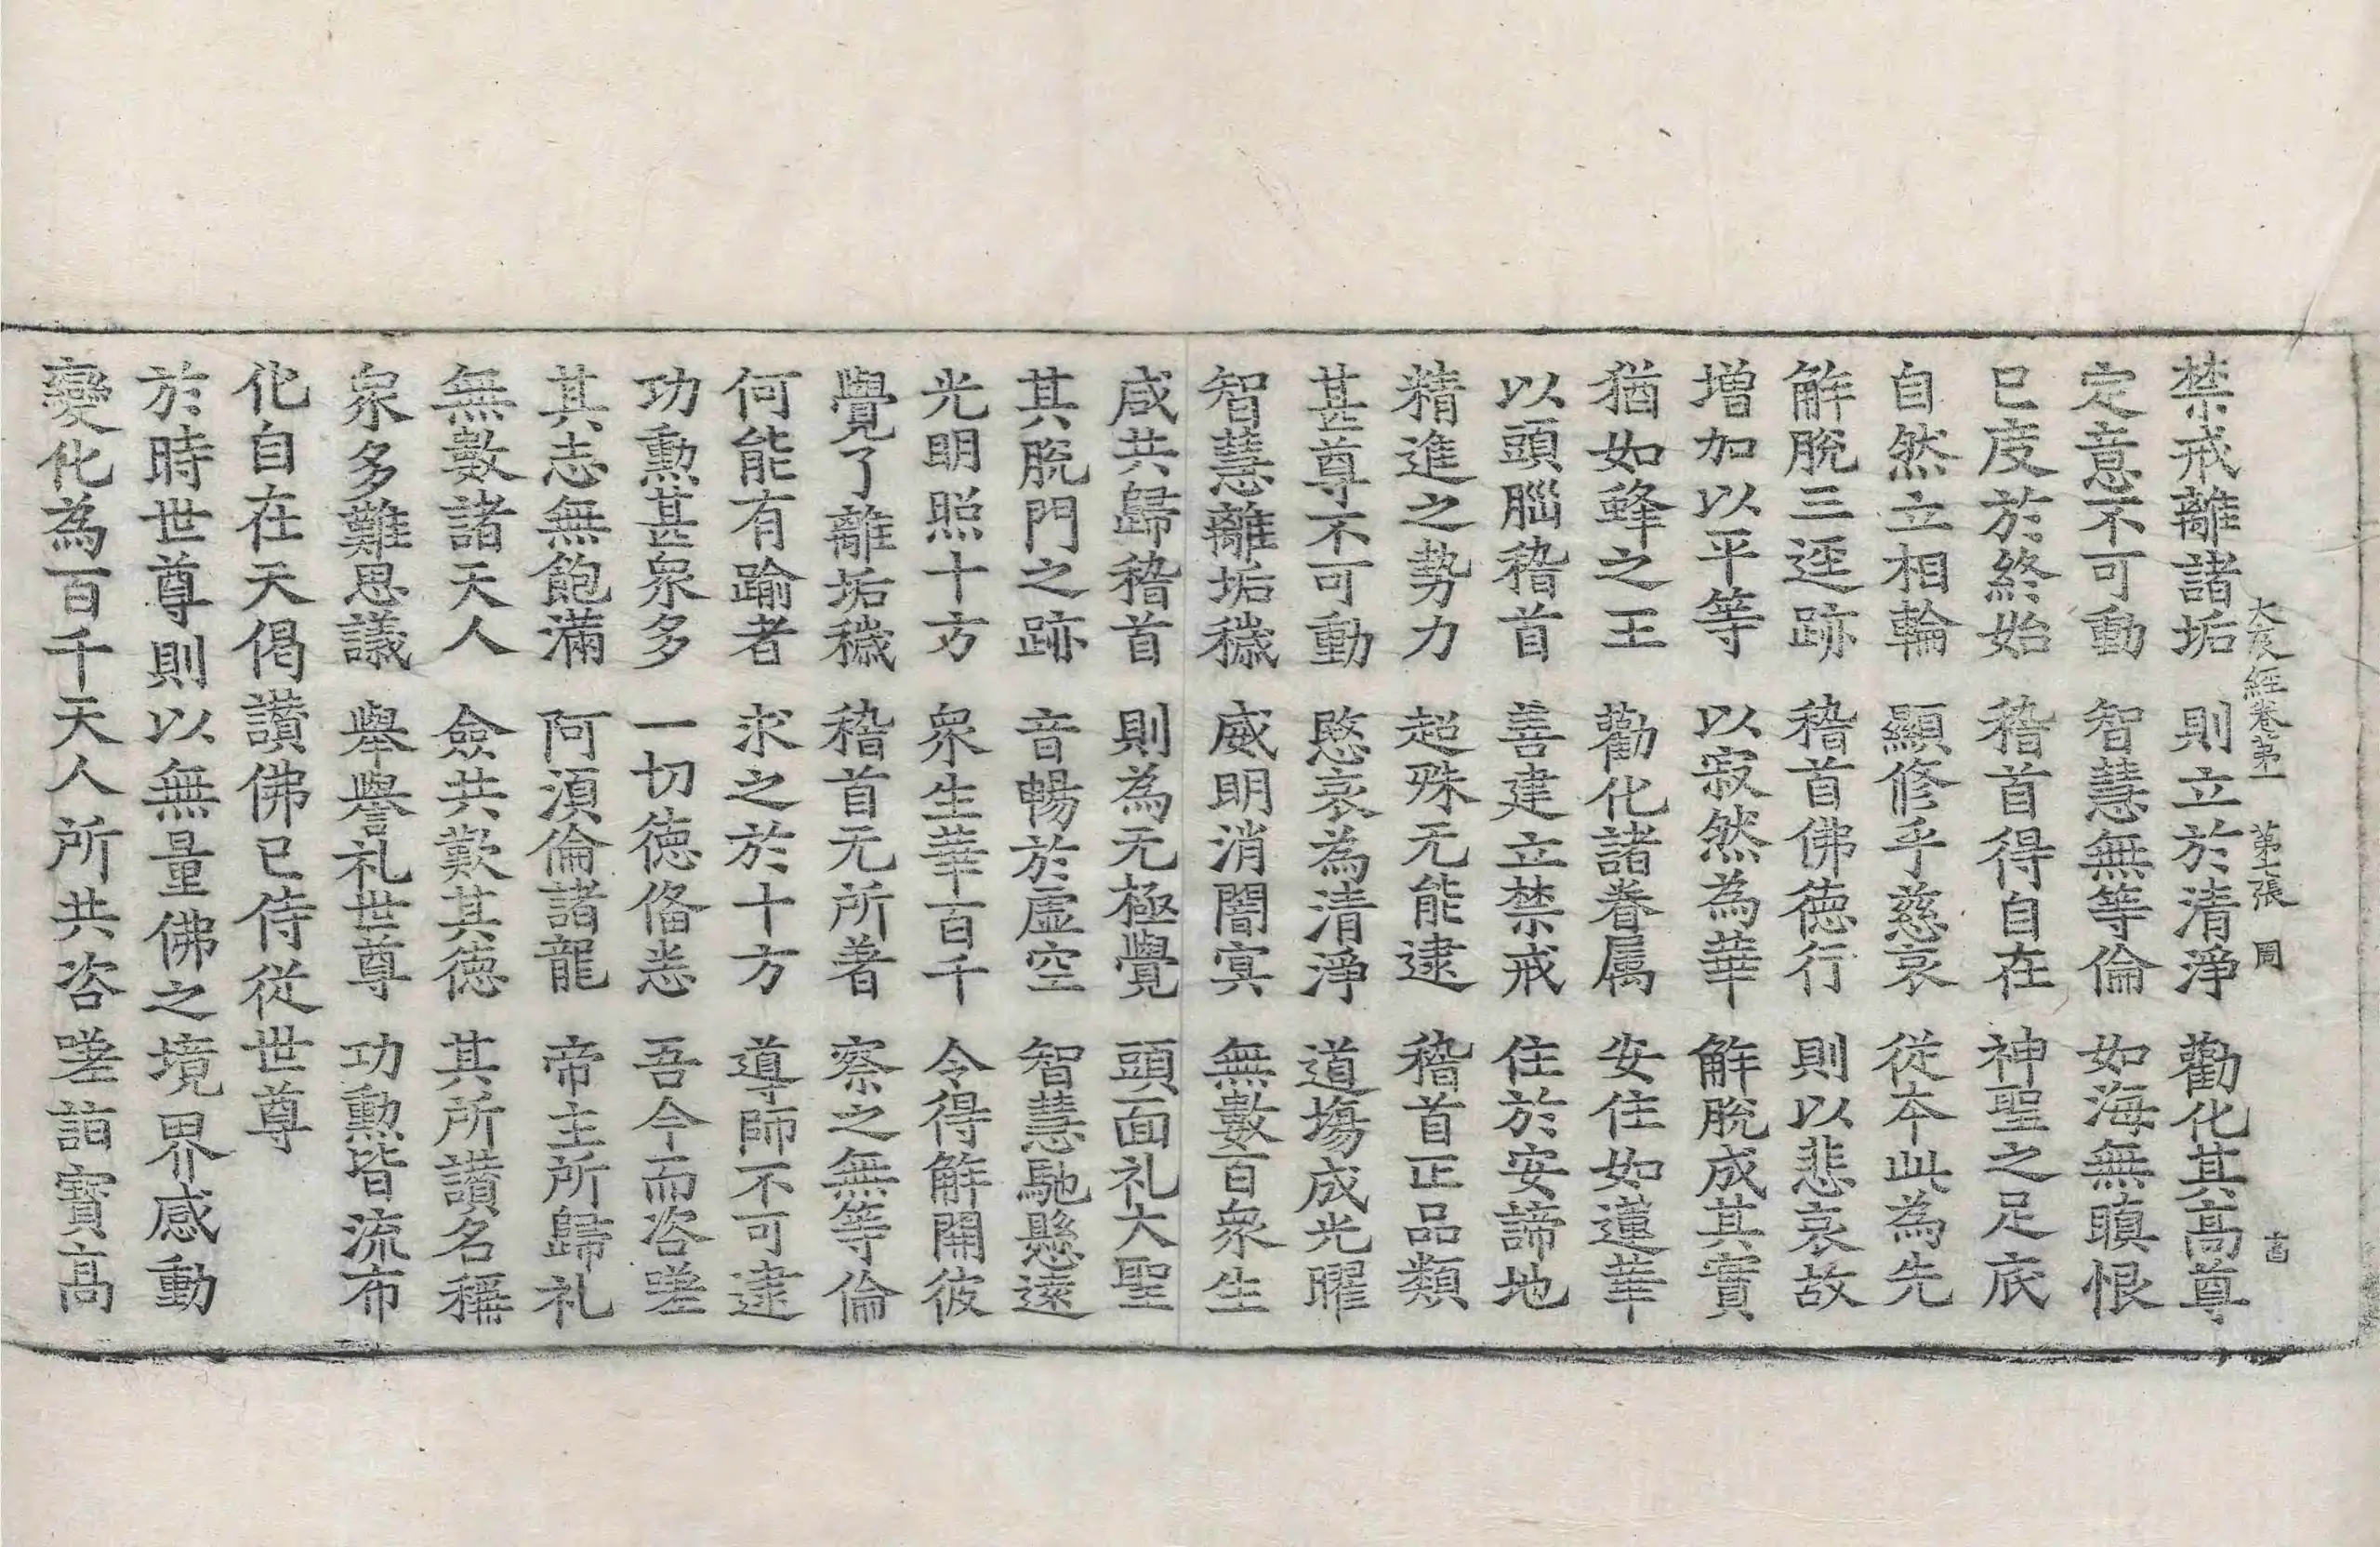 大哀經卷第一 第七張 周
禁戒離諸垢 則立於清淨 勸化其高尊
定意不可動 智慧無等倫 如海無瞋恨
已度於終始 稽首得自在 神聖之足底
自然立相輪 顯修乎慈哀 從本此為先
解脫三逕跡 稽首佛德行 則以悲哀故
增加以平等 以寂然為華 解脫成其實
猶如蜂之王 勸化諸眷属 安住如蓮華
以頭腦稽首 善建立禁戒 住於安諦地
精進之勢力 超殊无能逮 稽首正品類
甚尊不可動 愍哀為清淨 道塲成光曜
智慧離垢穢 威明消闇冥 無數百衆生
咸共歸稽首 則為无極覺 頭面礼大聖
其脫門之跡 音暢於虛空 智慧馳懸遠
光明照十方 衆生華百千 令得解開彼
覺了離垢穢 稽首无所著 察之無等倫
何能有踰者 求之於十方 導師不可逮
功勳甚衆多 一切德俻悉 吾今而咨嗟
其志無飽滿 阿須倫諸龍 帝主所歸礼
無數諸天人 僉共歎其德 其所讃名稱
衆多難思議 舉譽礼世尊 功勳皆流布
化自在天偈讃佛已侍從世尊
於時世尊則以無量佛之境界感動
變化為百千天人所共咨嗟詣寶高